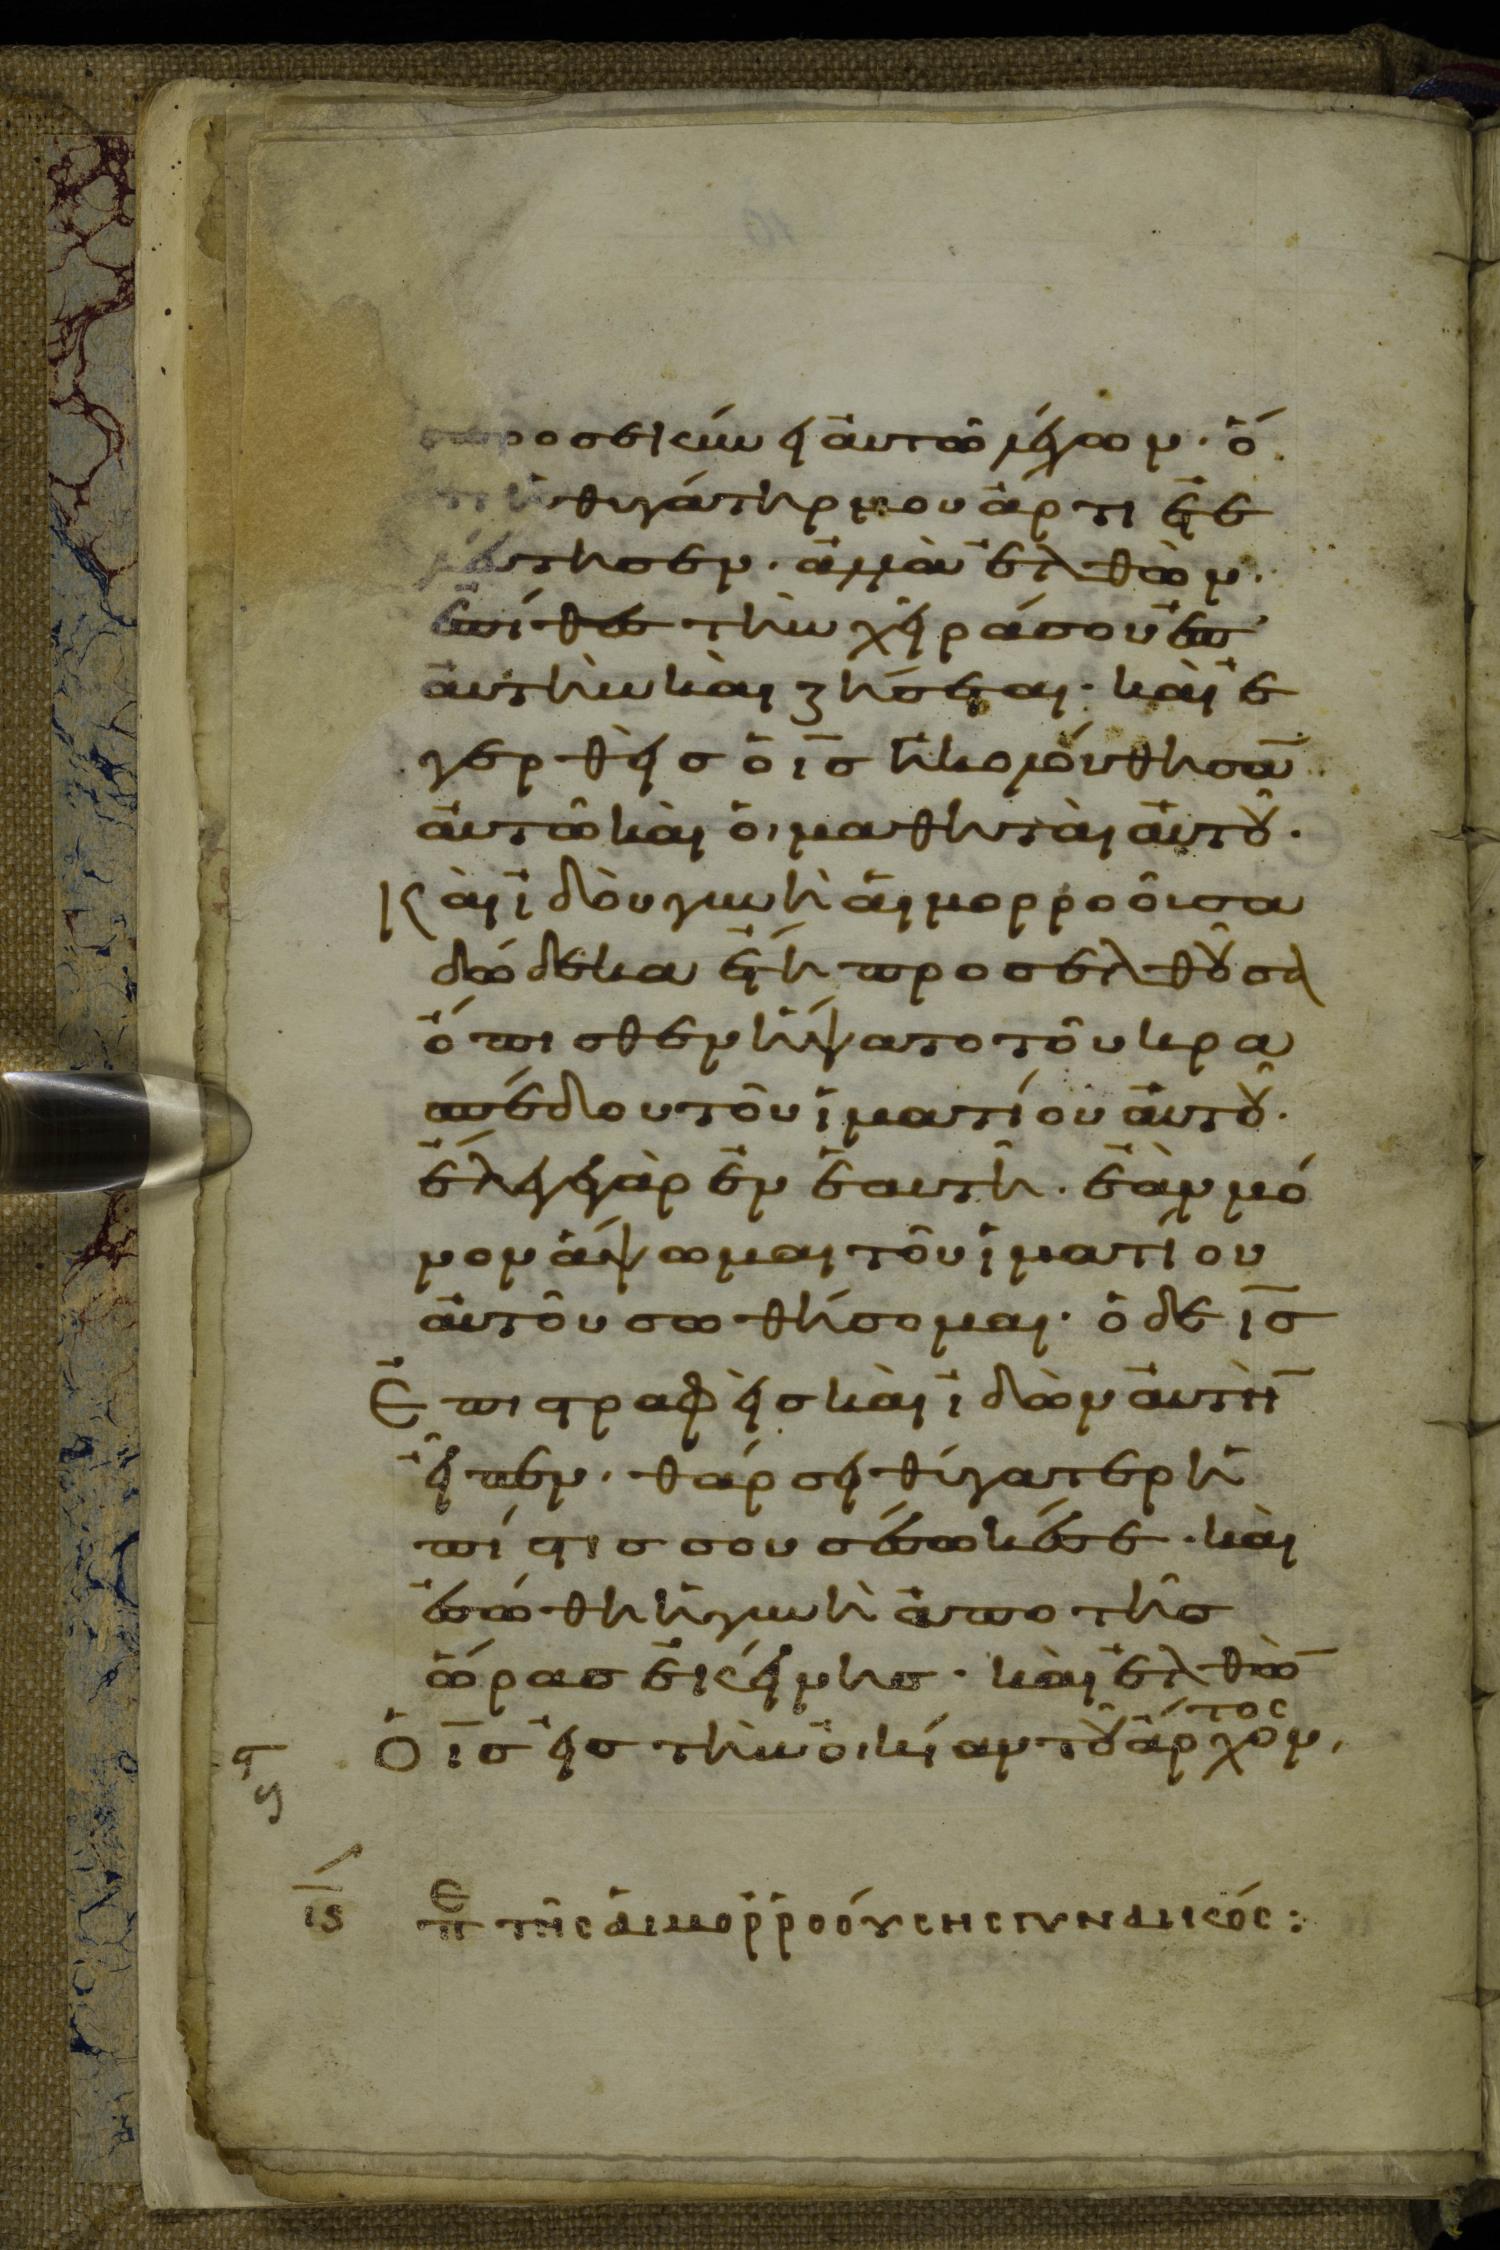 προσεκύνει αὐτῶ λέγων· ὅ
τι ἡ θυγάτηρ μου ἄρτι ἐτε
λεύτησεν· ἀλλὰ ἐλθὼν·
ἐπίθες τὴν χεῖρά σου ἐπ'
αὐτὴν καὶ ζήσεται· καὶ ἐ
γερθεὶς ὁ ι̅ς̅ ἠκολούθησα̅
αὐτῶ καὶ ὁι μαθηταὶ αὐτοῦ·
Καὶ ἰδοὺ γυνὴ αἱμορροοῦσα
δώδεκα ἔτη προσελθοῦσα
ὄπισθεν ἥψατο τοῦ κρα
σπέδου τοῦ ἱματίου αὐτοῦ·
ἔλεγε γὰρ ἐν ἑαυτῆ· ἐὰν μό
νον ἅψωμαι τοῦ ἱματίου
αὐτοῦ σωθήσομαι· ὁ δε ι̅ς̅
Ἐπιστραφεὶς καὶ ἰδὼν αὐτὴ̅
εἶπεν· θάρσει θύγατερ ἡ
πίστις σου σέσωκέσε· καὶ
ἐσώθη ἡ γυνὴ ἀπο τῆς
ὥρας ἐκείνης· καὶ ἐλθὼ̅
Ὁ ι̅ς̅ εἰς τὴν οἰκίαν τοῦ ἄρχον,
τος
ι̅ς̅ πε τῆς αἱμορροούσης γυναικός: